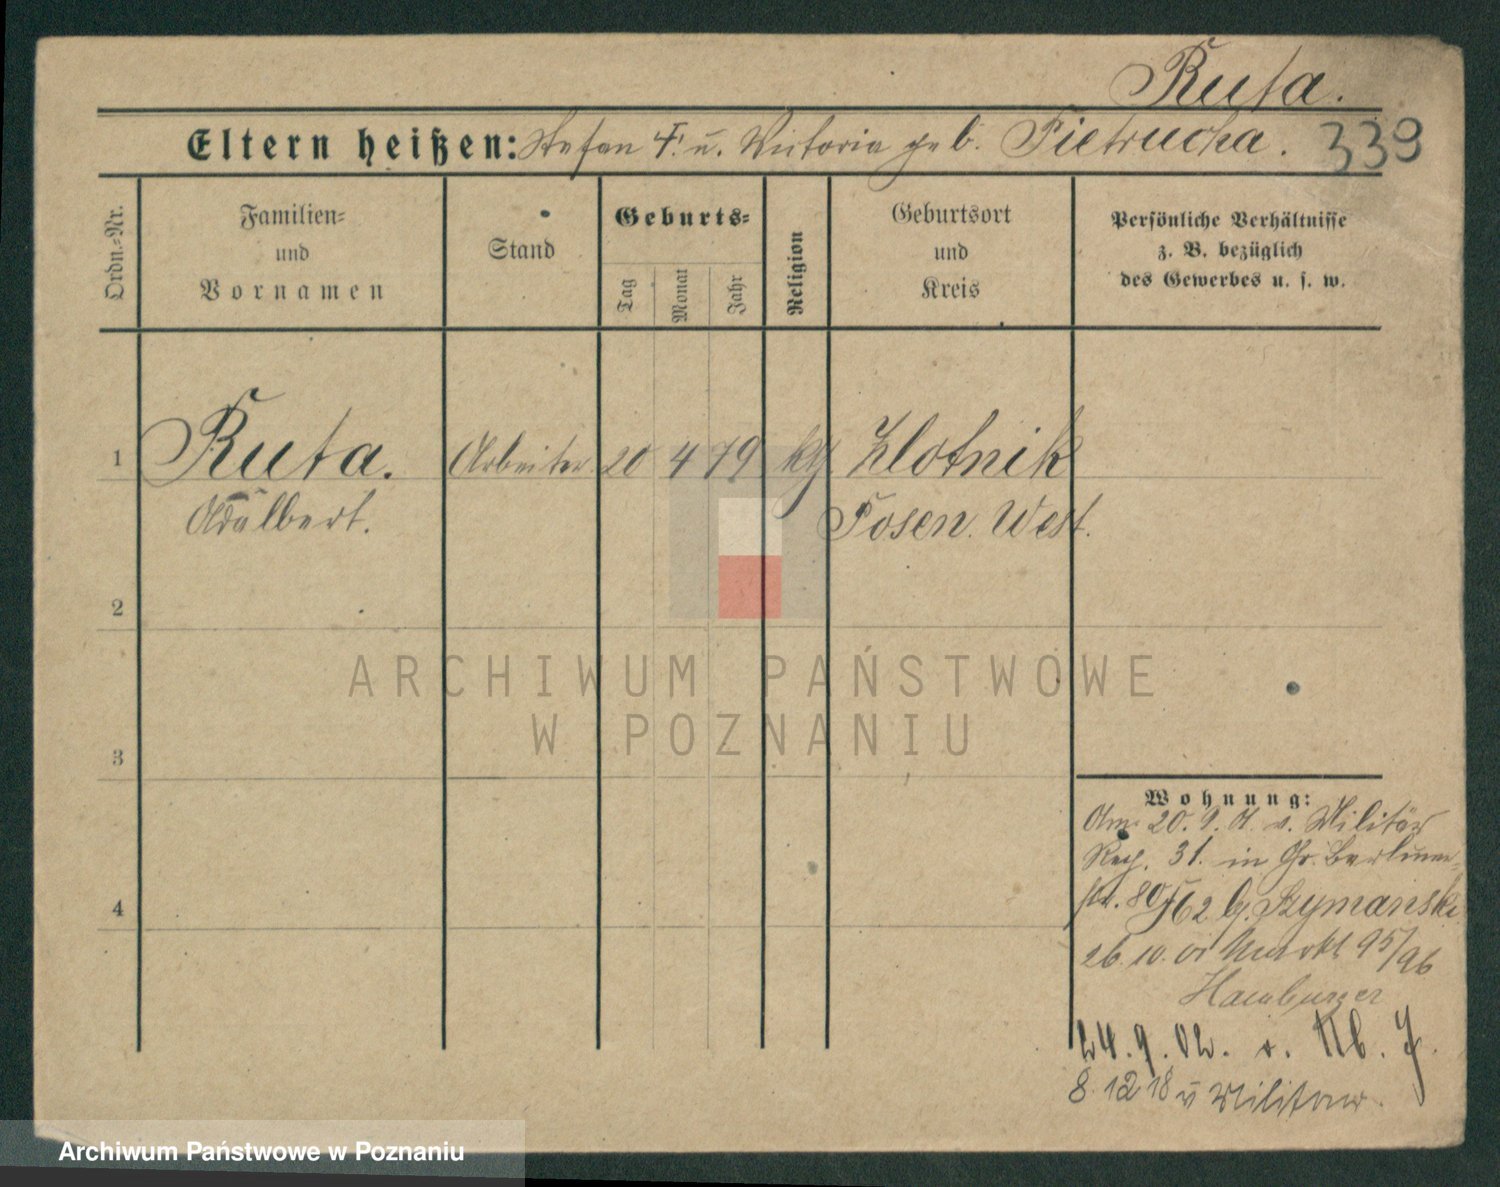 Ruta.
Eltern heißen: Stefan F. u. Victoria geb. Pietrucha. 339
Ordn.-Nr.
Familien- und Vornamen
Stand
Geburts-
Tag
Monat
Jahr
Religion
Geburtsort und Kreis
Persönliche Verhältnisse
z. B. bezüglich
des Gewerbes u. s. w.
1 Ruta. Arbeiter 20 4 79 kg Zlotnik
Adalbert. Posen. West.
2
3
4
Wohnung:
Am 20. 9. 01. v. Militär
Reg. 31. in Gr. Berliner-
str. 80/62 b. Szymanski
26. 10. 01 95/96
Hamburger
24. 9. 02. v.
8. 12 18 v Militär.
ARCHIWUM PAŃSTWOWE
W POZNANIU
Archiwum Państwowe w Poznaniu